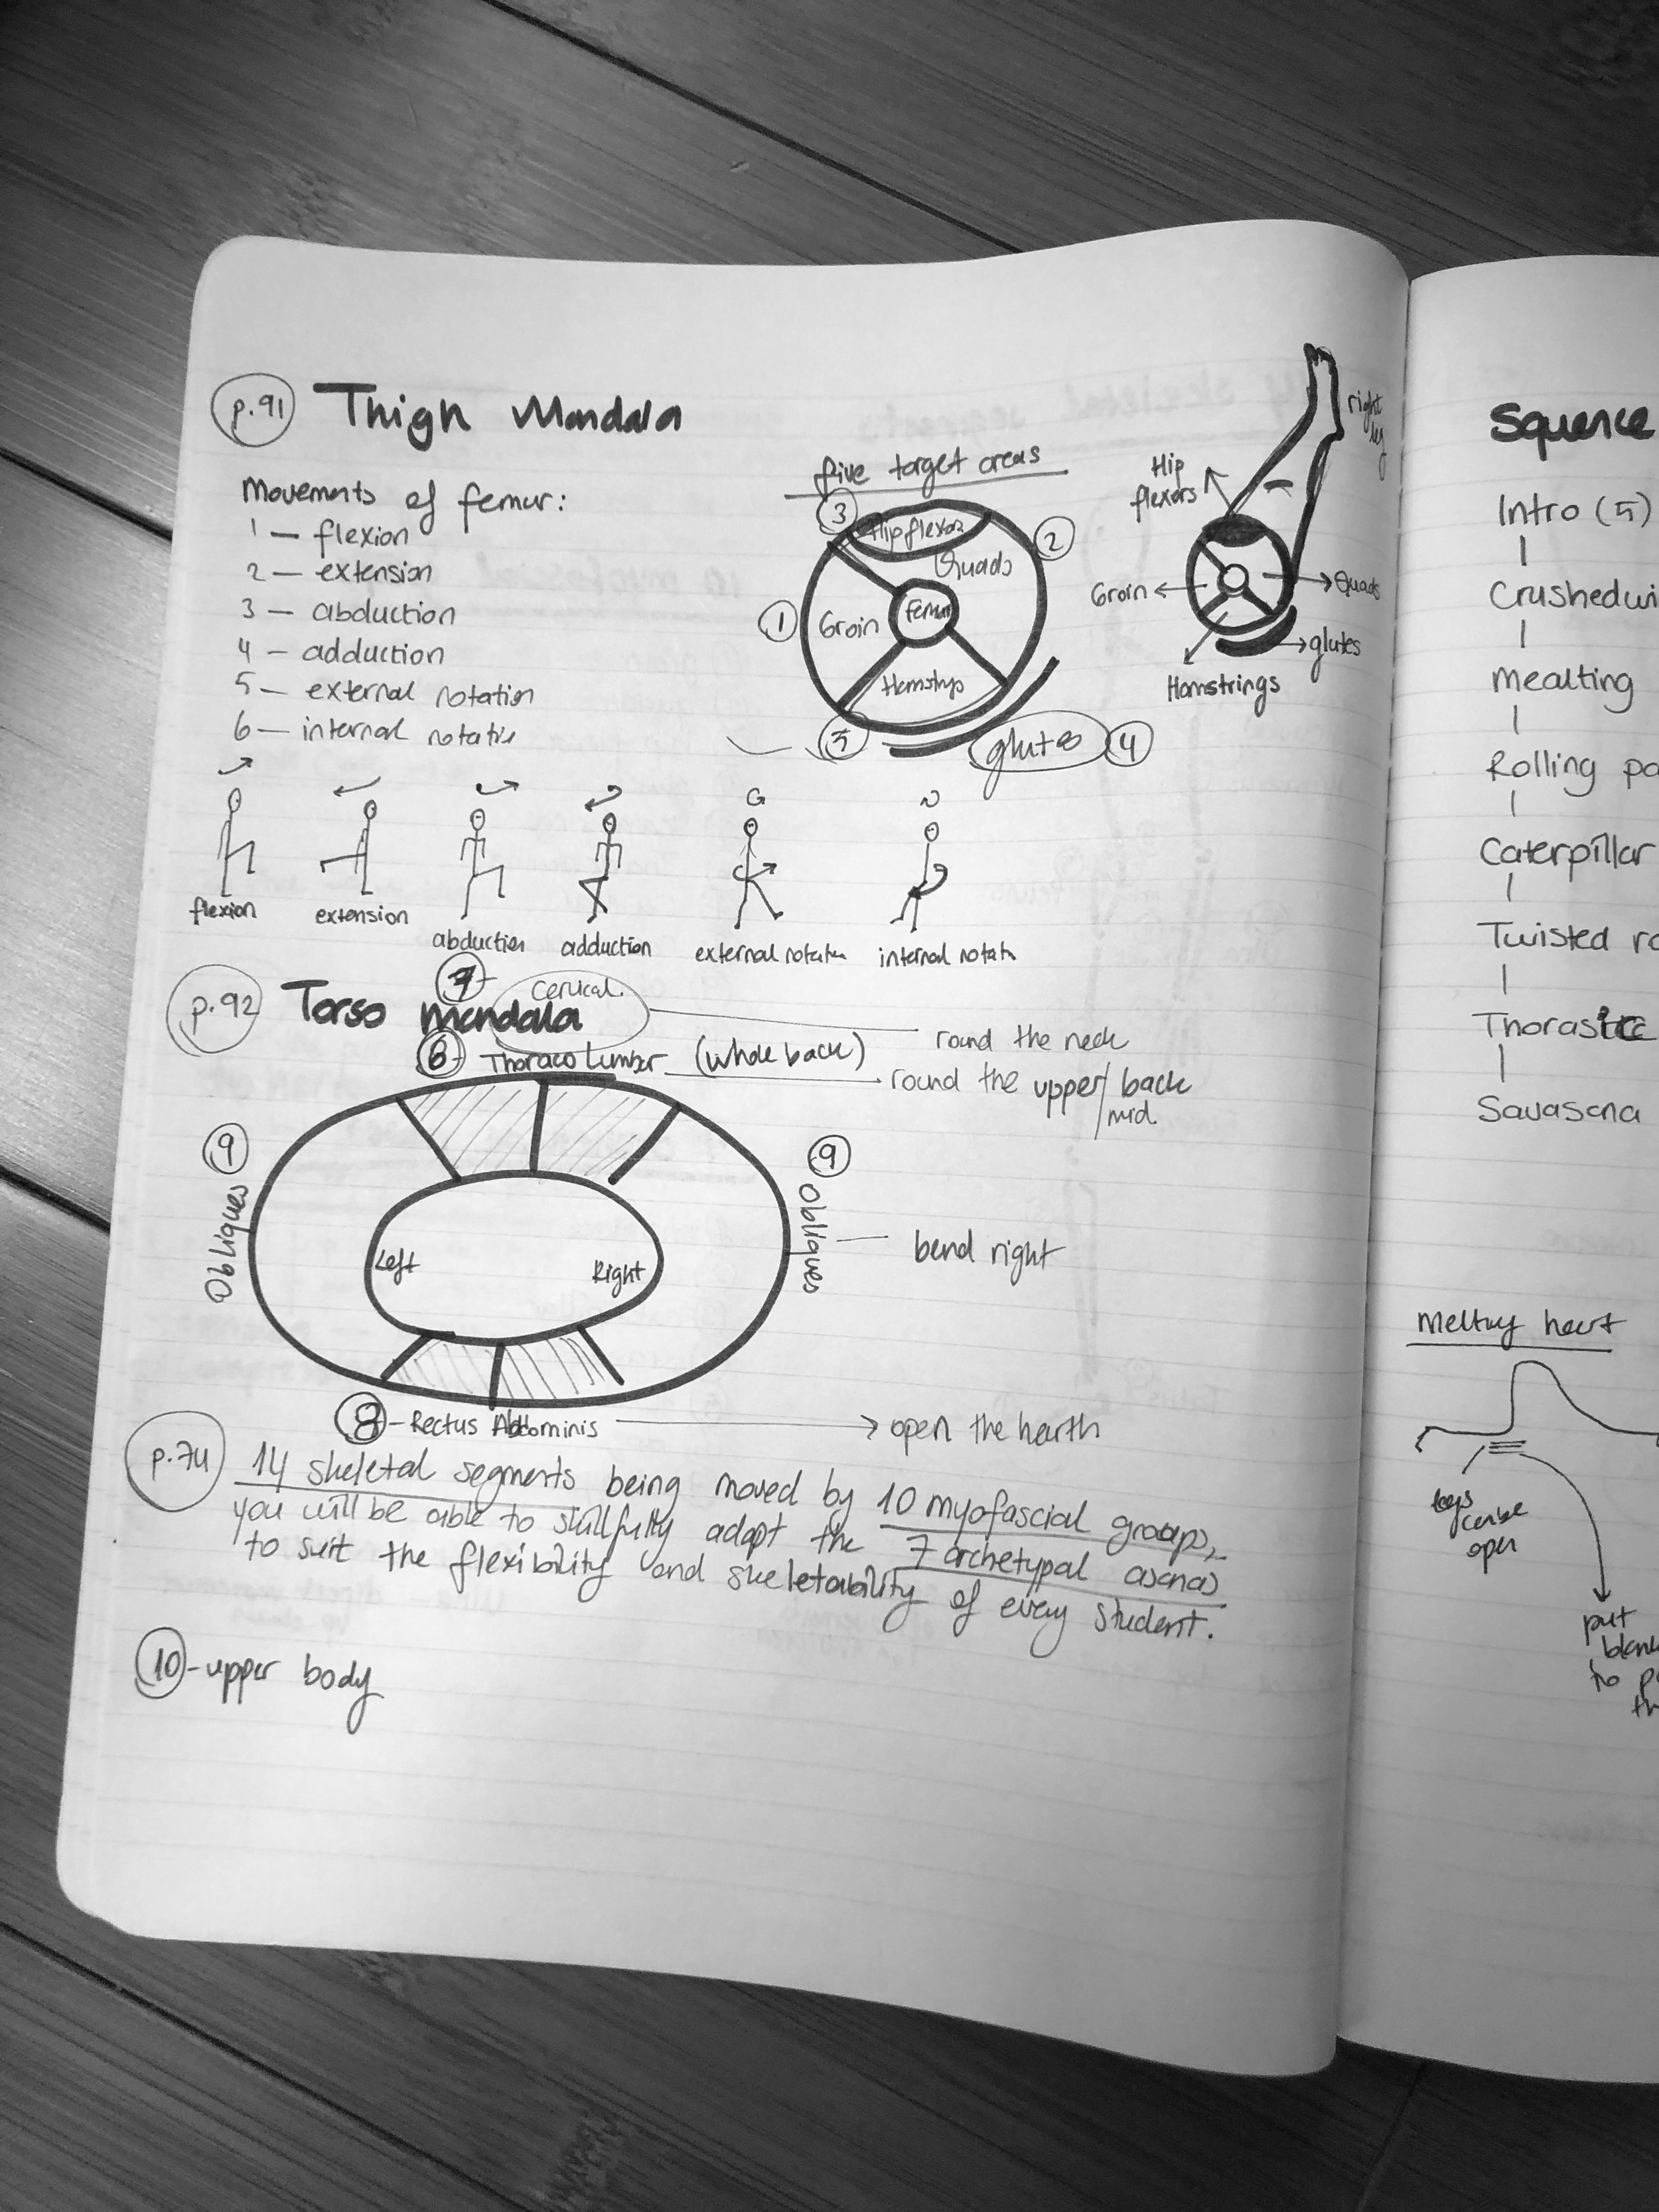 p.91 Thigh Mandala
Movements of femur:
1 — flexion
2 — extension
3 — abduction
4 — adduction
5 — external rotation
6 — internal
five target areas
3
Hip flexor
2
Quads
1
Groin
Femur
Hamstrings
5
glutes 4
right leg
Hip flexors
Groin
Quads
glutes
Hamstrings
flexion
extension
abduction
adduction
external
internal
p.92 Torso Mandala
7 - Cervical.
round the neck
6 - Thoraco Lumbar (whole back)
round the upper/ back
mid.
9
Obliques
9
Obliques
bend right
Left
Right
8 - Rectus Abdominis
open the hearth
p.74 14 skeletal segments being moved by 10 myofascial groups,
you will be able to skillfully adapt the 7 archetypal asanas
to suit the flexibility and skeletability of every student.
10 - upper body
Squence
Intro (5)
Crushed
Mealting
Rolling
Caterpillar
Twisted
Thorasicc
Savasana
Melting heart
open
put
to